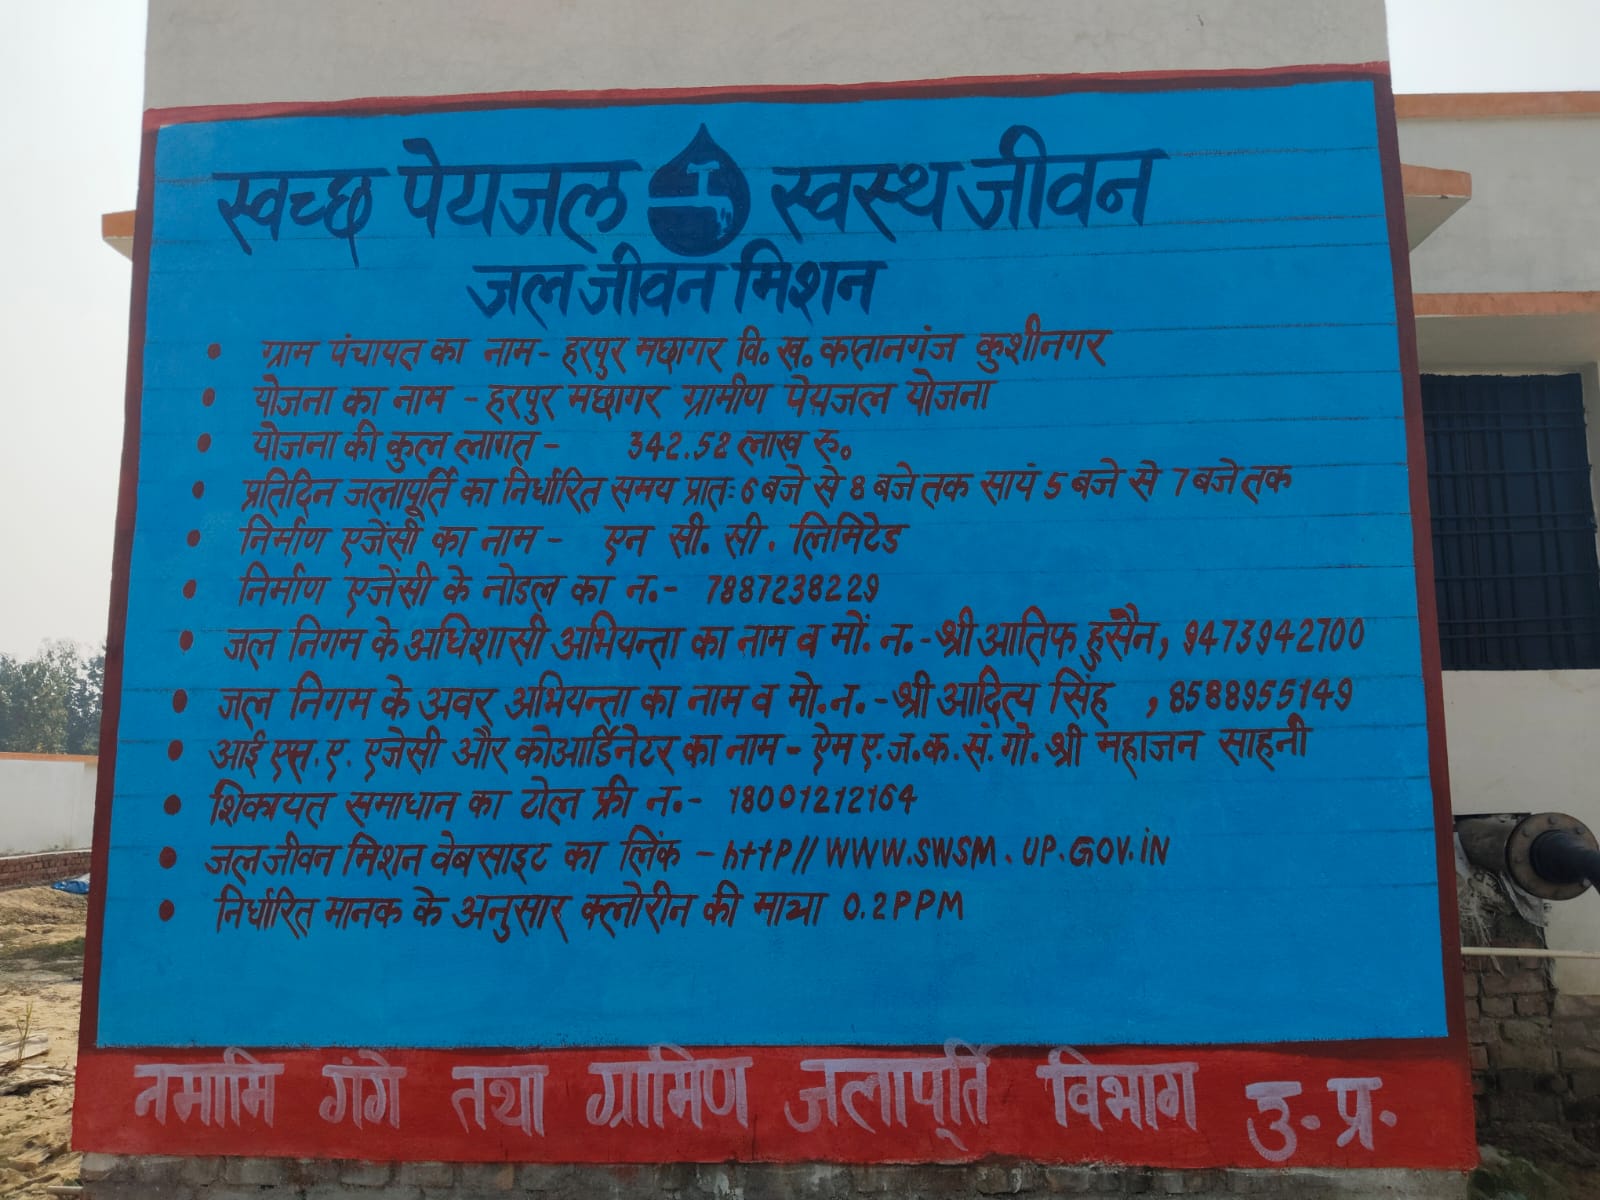 स्वच्छ पेयजल स्वस्थ जीवन
जल जीवन मिशन
• ग्राम पंचायत का नाम - हरपुर मछागर वि. ख. कप्तानगंज कुशीनगर
• योजना का नाम - हरपुर मछागर ग्रामीण पेयजल योजना
• योजना की कुल लागत - 342.52 लाख रु.
• प्रतिदिन जलापूर्ति का निर्धारित समय प्रातः 6 बजे से 8 बजे तक सायं 5 बजे से 7 बजे तक
• निर्माण एजेंसी का नाम - एन सी. सी. लिमिटेड
• निर्माण एजेंसी के नोडल का न. - 7887238229
• जल निगम के अधिशासी अभियन्ता का नाम व मों. न. - श्री आतिफ हुसैन, 9473942700
• जल निगम के अवर अभियन्ता का नाम व मो. न. - श्री आदित्य सिंह , 8588955149
• आई एस. ए. एजेंसी और कोआर्डिनेटर का नाम - ऐम ए. ज. क. सं. गो. श्री महाजन साहनी
• शिकायत समाधान का टोल फ्री न. - 18001212164
• जल जीवन मिशन वेबसाइट का लिंक - httP//WWW.SWSM.UP.GOV.iN
• निर्धारित मानक के अनुसार क्लोरीन की मात्रा 0.2PPM
नमामि गंगे तथा ग्रामिण जलापूर्ति विभाग उ. प्र.